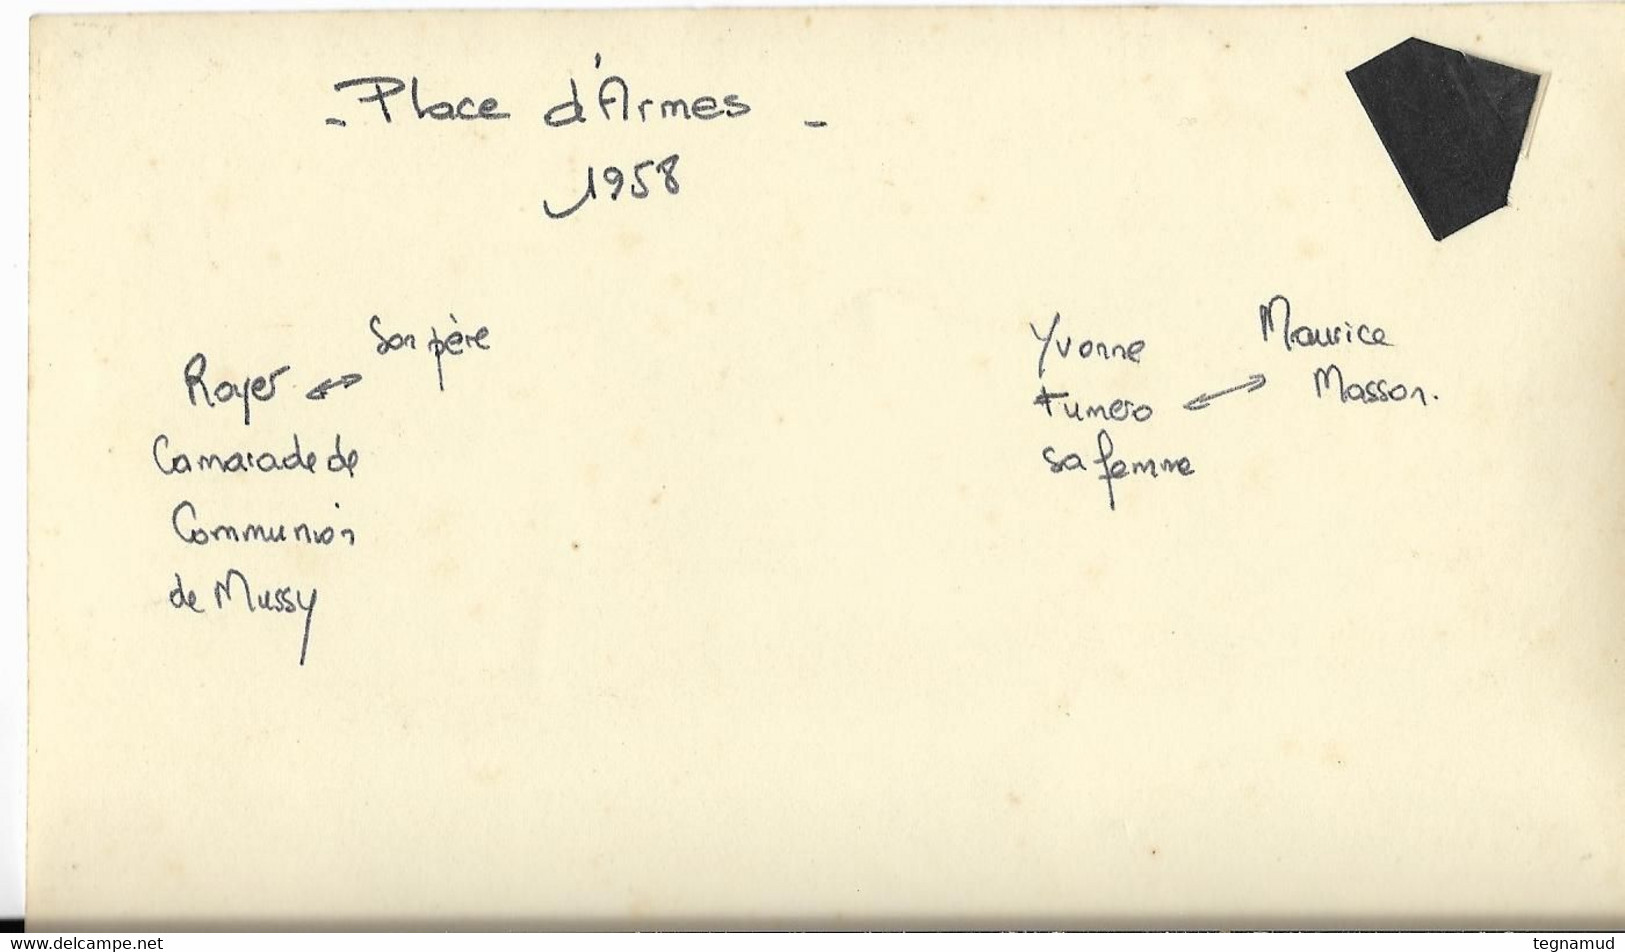 - Place d'Armes -
1958
Son père
Royer
Camarade de
Communion
de Mussy
Yvonne
Fumero
sa femme
Maurice
Masson.
www.delcampe.net
tegnamud